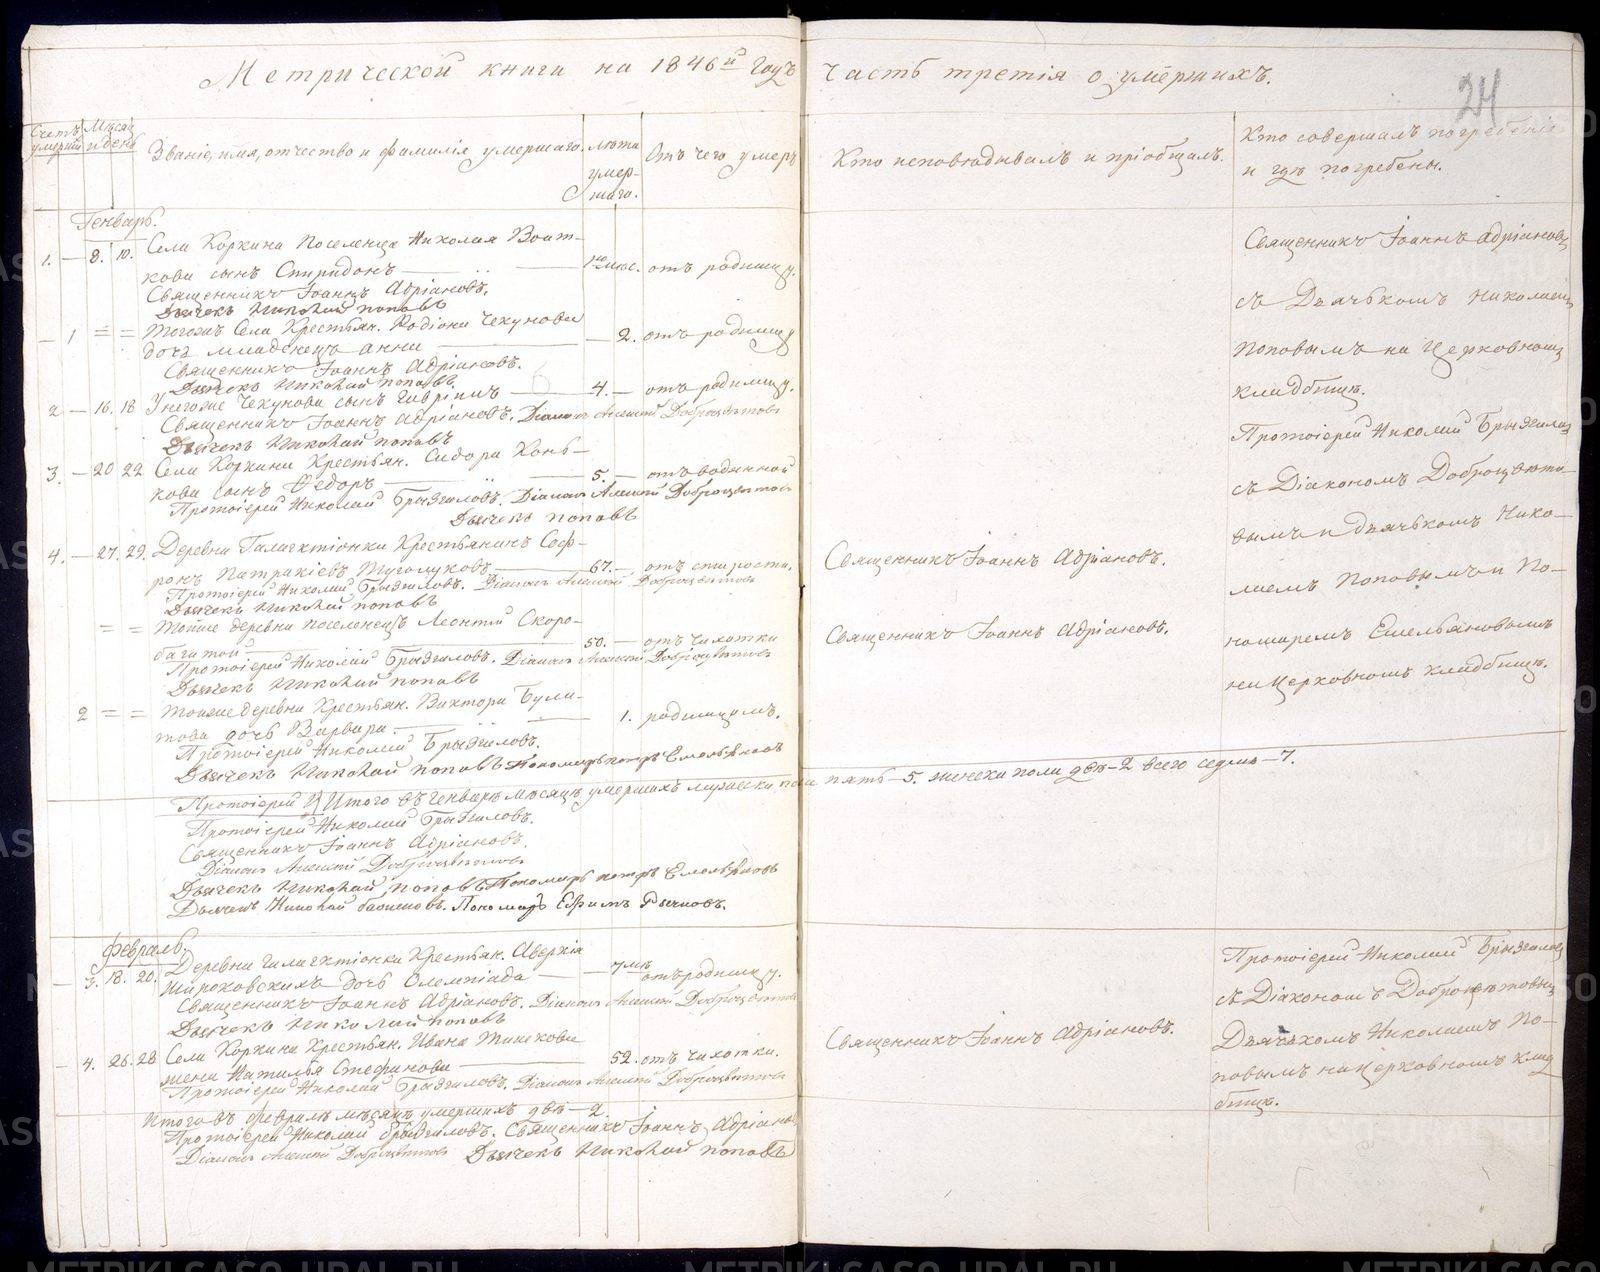 Метрической книги на 1846й годъ
часть третія о умершихъ.
24
Счетъ умерших
Месяц и день
Званіе, имя, отчество и фамилія умершаго.
Лѣта умершаго.
Отъ чего умеръ
Кто исповѣдывалъ и пріобщалъ.
Кто совершалъ погребеніе
и гдѣ погребены.
Генварь.
1. — 8. 10. Села Коркина Поселенца Николая Войт-
кова сынъ Спиридонъ — мѣс. отъ родимцу.
Священникъ Іоаннъ Адріановъ.
Дьячекъ Николай поповъ
— 1 = = Тогожъ Села Крестьян. Родіона Чекунова
дочь младенецъ Анна — 2. отъ родимцу
Священникъ Іоаннъ Адріановъ.
Дьячекъ Николай поповъ.
2 — 16. 18 У негоже Чекунова сынъ Гавріилъ — 4. — отъ родимцу.
Священникъ Іоаннъ Адріановъ. Діаконъ Алексій Доброцвѣтовъ
Дьячекъ Николай поповъ
3. — 20 22 Села Коркина Крестьян. Сидора Конь-
кова сынъ Ѳедоръ — 5. — отъ водянной
Протоіерей Николай Брызгаловъ. Діаконъ Алексій Доброцвѣтовъ
Дьячекъ поповъ
4. — 27. 29. Деревни Галактіонки Крестьянинъ Соф-
ронъ Патракіевъ — 67. — отъ старости.
Протоіерей Николай Брызгаловъ. Діаконъ Алексій Доброцвѣтовъ
Дьячекъ Николай поповъ
= = Тойже деревни поселенецъ Леонтій Скоро-
багатой — 50. — отъ чахотки
Протоіерей Николай Брызгаловъ. Діаконъ Алексій Доброцвѣтовъ
Дьячекъ Николай поповъ
2 = = Тойже деревни Крестьян. Виктора Була-
това дочь Варвара — 1. родимцомъ.
Протоіерей Николай Брызгаловъ.
Дьячекъ Николай поповъ Пономарь петръ Емельяновъ
Протоіерей Н Итого въ Генварѣ мѣсяцѣ умершихъ мужеска пола пять — 5. женска пола двѣ — 2 всего седмь — 7.
Протоіерей Николай Брызгаловъ.
Священникъ Іоаннъ Адріановъ.
Діаконъ Алексій Доброцвѣтовъ
Дьячекъ Николай поповъ Пономарь петръ Емельяновъ
Дьячекъ Николай Пономарь Ефимъ
Февраль.
— 3. 18. 20. Деревни Галактіонки Крестьян. Аверкія
Широковскихъ дочь Олемпіада — 7 мѣ отъ родимцу.
Священникъ Іоаннъ Адріановъ. Діаконъ Алексій Доброцвѣтовъ
Дьячекъ Николай поповъ
— 4. 26. 28 Села Коркина Крестьян. Ивана
жена Наталья Стефанова — 52. отъ чахотки.
Протоіерей Николай Брызгаловъ. Діаконъ Алексій Доброцвѣтовъ
Итого въ февралѣ мѣсяцѣ умершихъ двѣ — 2.
Протоіерей Николай Брызгаловъ. Священникъ Іоаннъ Адріановъ
Діаконъ Алексій Доброцвѣтовъ Дьячекъ Николай поповъ
Священникъ Іоаннъ Адріановъ.
Священникъ Іоаннъ Адріановъ.
Священникъ Іоаннъ Адріановъ.
Священникъ Іоаннъ Адріановъ
съ Дьячькомъ Николаемъ
Поповымъ на Церковномъ
кладбищѣ.
Протоіерей Николай Брызгалов
съ Діакономъ Доброцвѣто-
вымъ и дьячькомъ Нико-
лаемъ Поповымъ и По-
номаремъ Емельяновымъ
на Церковномъ кладбищѣ.
Протоіерей Николай Брызгалов
съ Діакономъ Доброцвѣтовы
Дьячькомъ Николаемъ По-
повымъ на Церковномъ клад
бищѣ.
METRIKI.GASO-URAL.RU